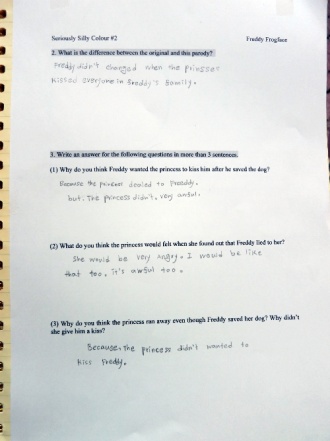 Seriously Silly Colour #2 Freddy Frogface
2. What is the difference between the original and this parody?
Freddy didn't changed when the prinsses
kissed everyone in Freddy's family.
3. Write an answer for the following questions in more than 3 sentences.
(1) Why do you think Freddy wanted the princess to kiss him after he saved the dog?
Because the princess dealed to Freddy.
but. The princess didn't. very awful.
(2) What do you think the princess would felt when she found out that Freddy lied to her?
She would be very angry. I would be like
that too. it's awful too.
(3) Why do you think the princess ran away even though Freddy saved her dog? Why didn't
she give him a kiss?
Because, the princess didn't wanted to
kiss Freddy.